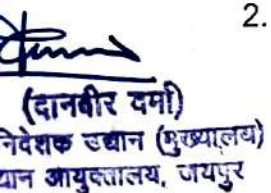 2.
(दानवीर वर्मा)
निदेशक उद्यान (मुख्यालय)
द्यान आयुक्तालय, जयपुर